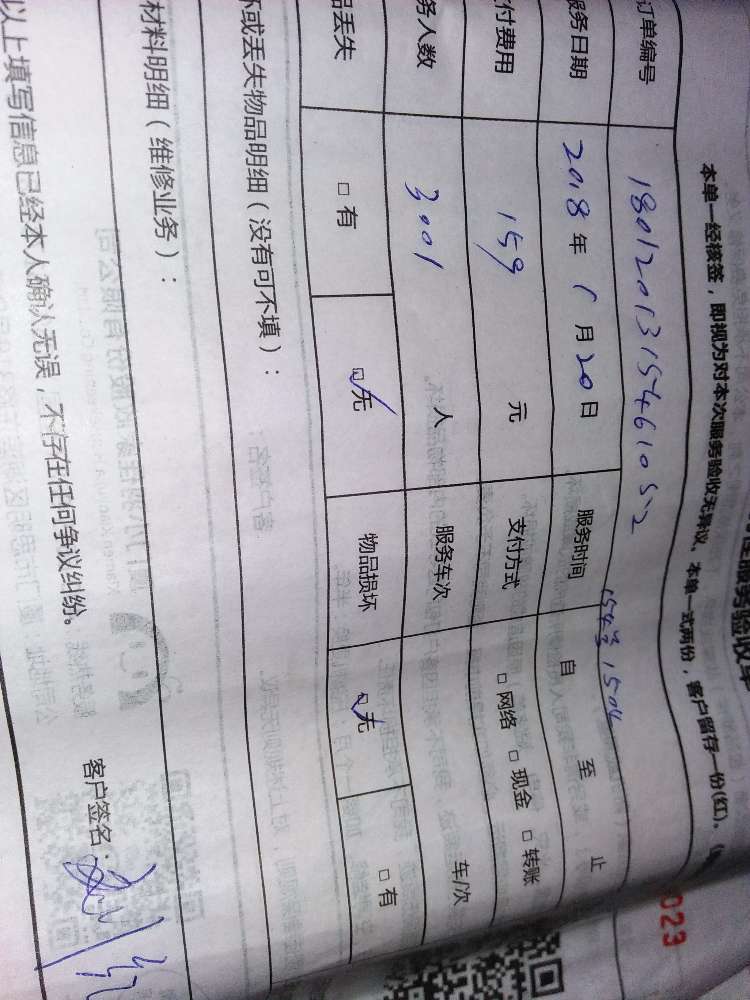 服务验收单
本单一经核签，即视为对本次服务验收无异议。本单一式两份，客户留存一份(红)。
023
订单编号 1801201315461052
服务日期 2018年1月20日 服务时间 自 至 1504 止
付费用 159 元 支付方式 □网络 □现金 □转账
务人数 3001 人 服务车次 车/次
品丢失 □有 ☑无 物品损坏 ☑无 □有
坏或丢失物品明细（没有可不填）：
材料明细（维修业务）：
以上填写信息已经本人确认无误，不存在任何争议纠纷。
客户签名：